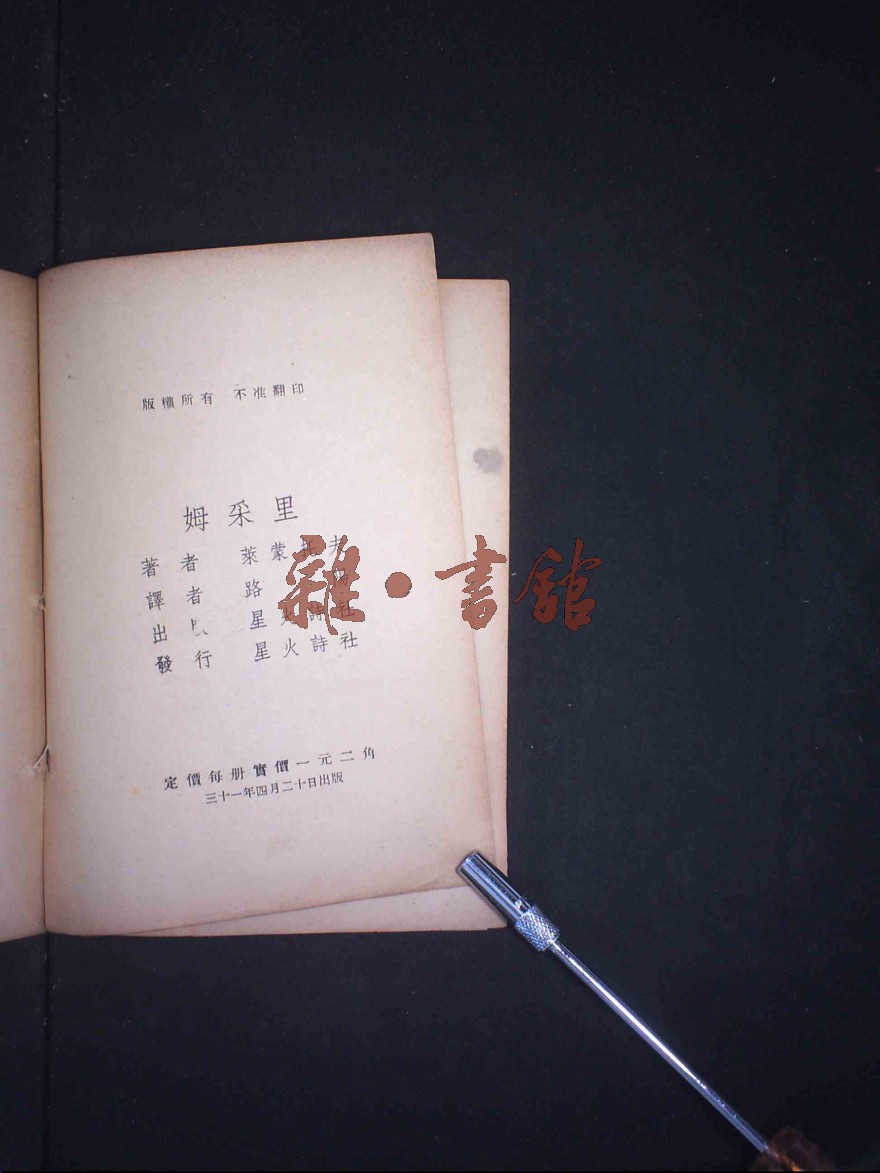 版權所有 不准翻印
姆采里
著者 萊蒙托夫
譯者 路
出版 星火詩社
發行 星火詩社
定價每册實價一元二角
三十一年四月二十日出版
雜·書館